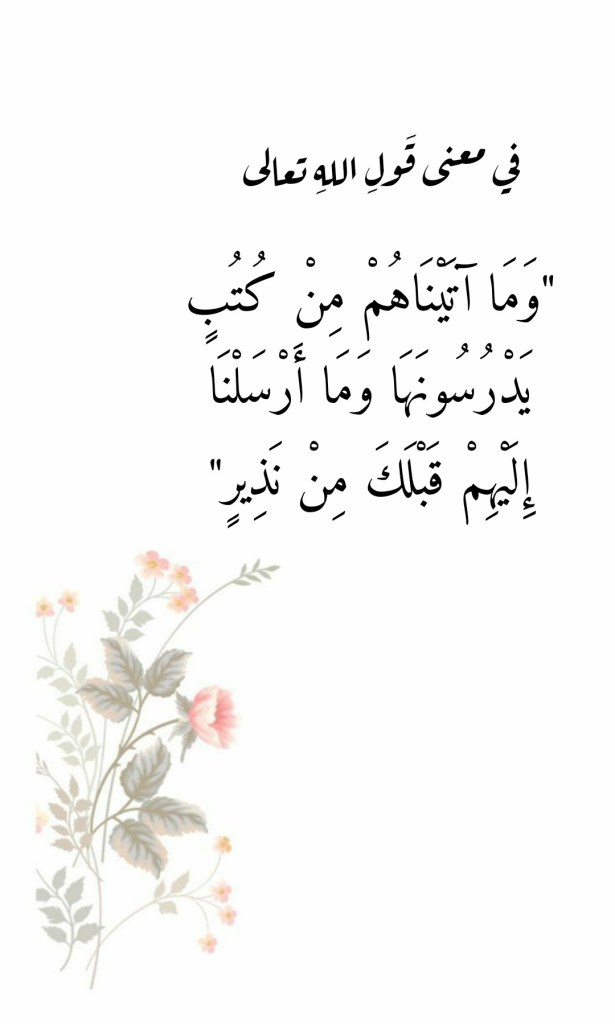 في معنى قَولِ اللهِ تعالى
"وَمَا آتَيْنَاهُمْ مِنْ كُتُبٍ
يَدْرُسُونَهَا وَمَا أَرْسَلْنَا
إِلَيْهِمْ قَبْلَكَ مِنْ نَذِيرٍ"